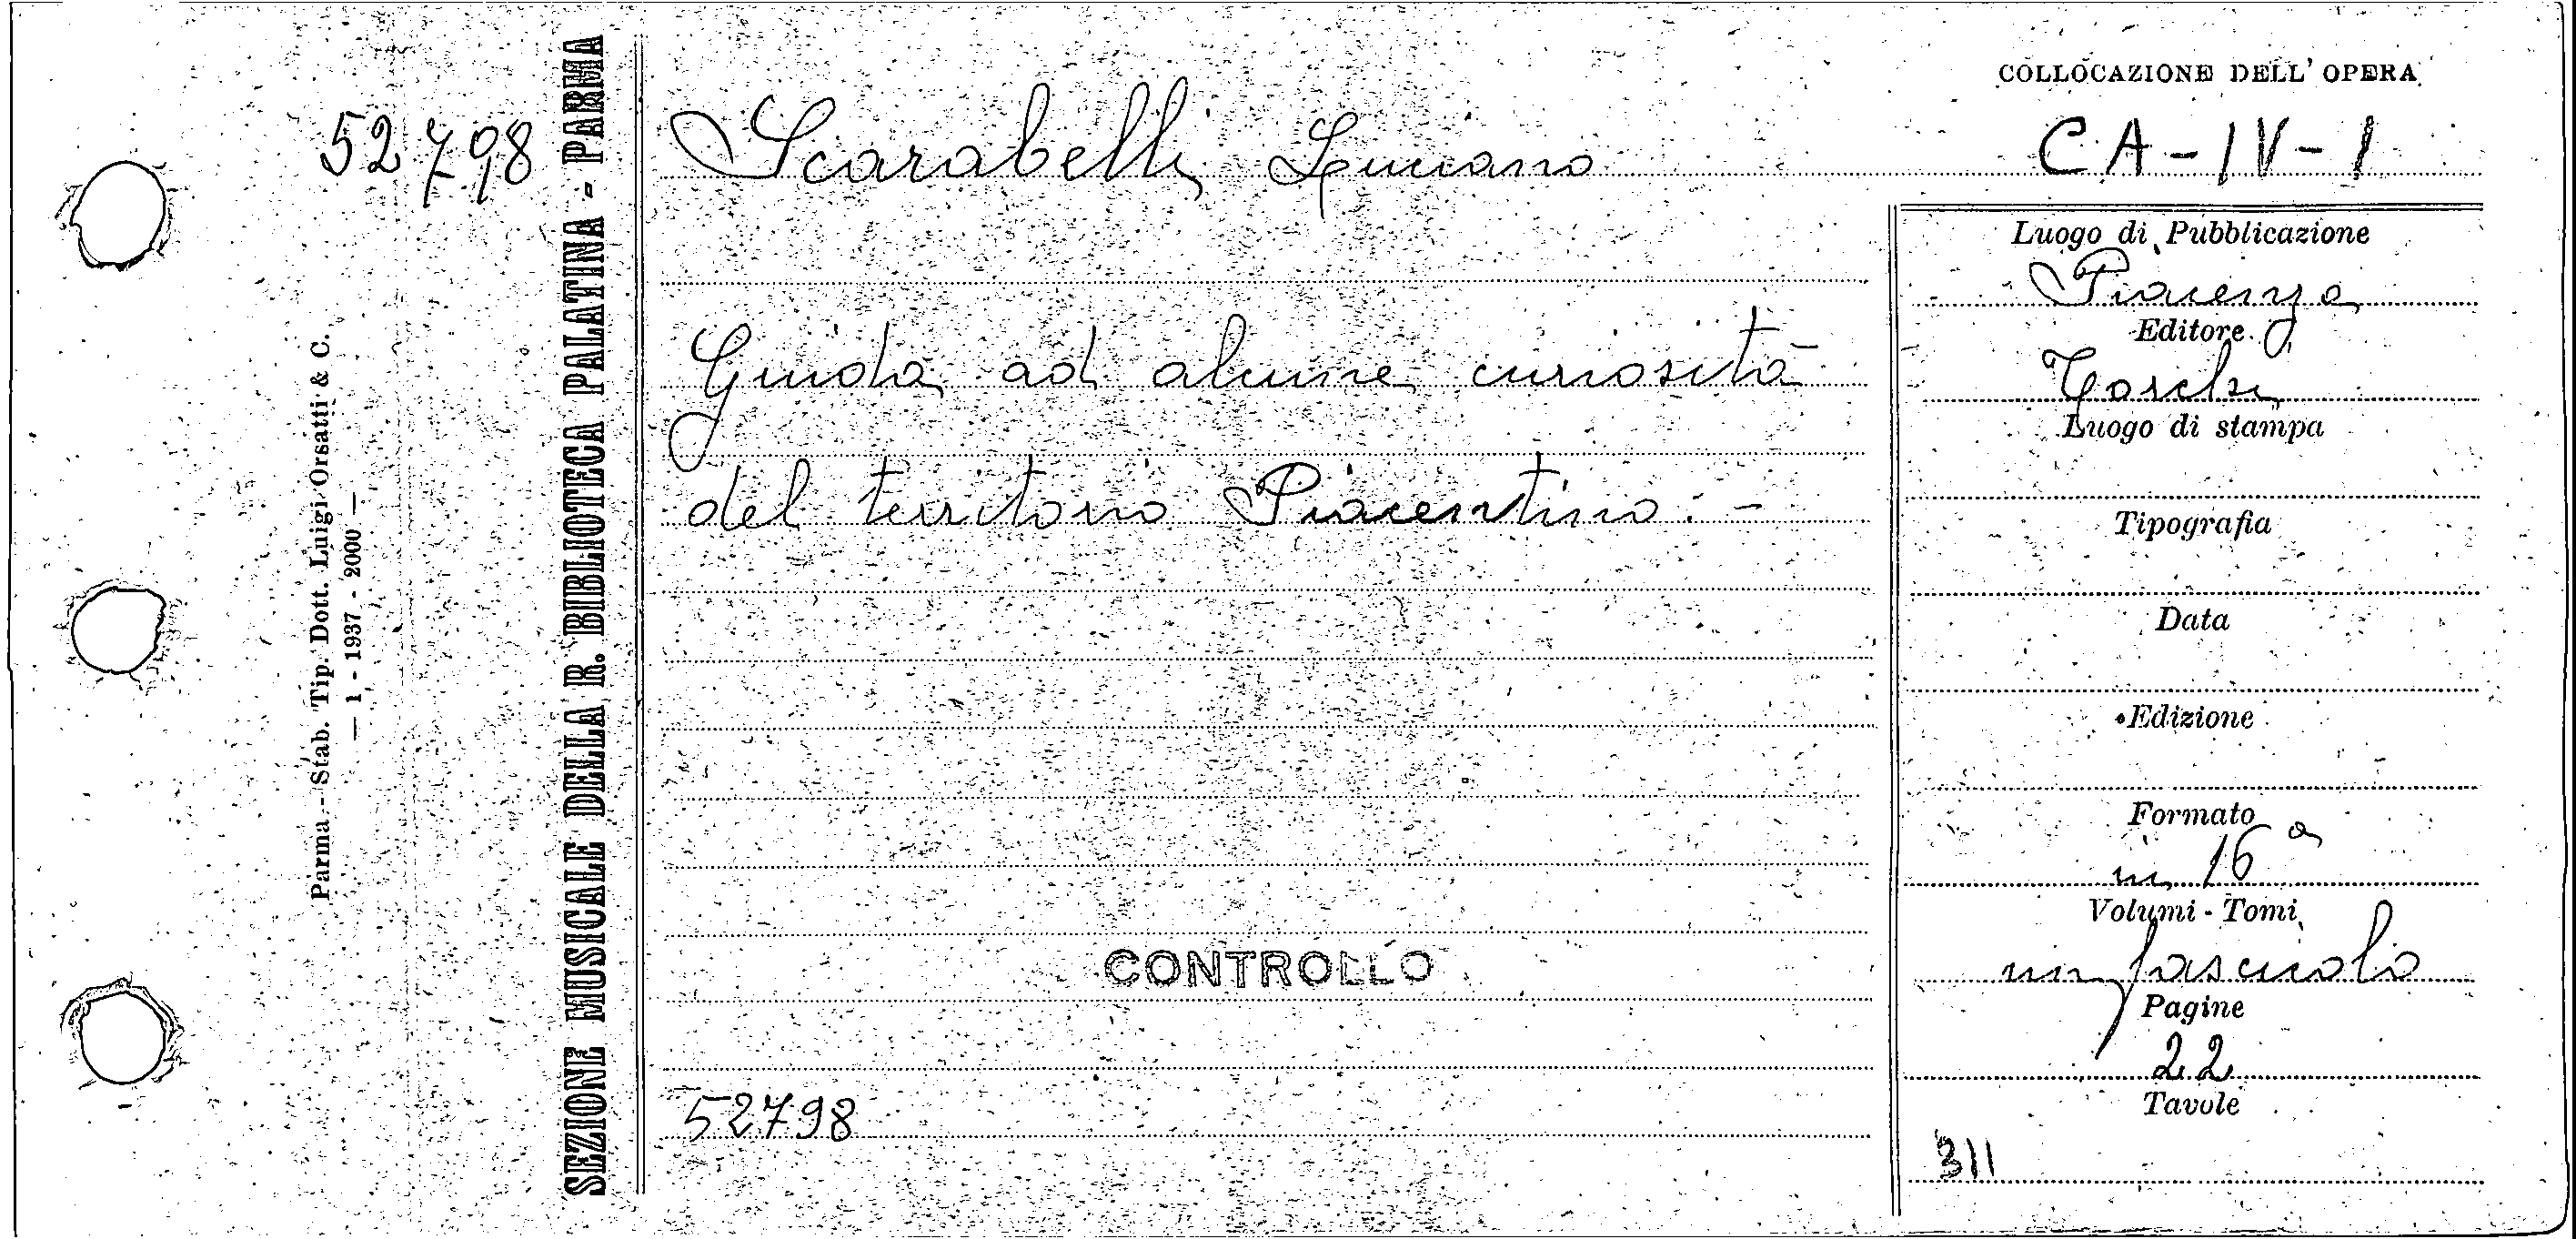 52798
Parma - Stab. Tip. Dott. Luigi Orsatti & C.
— 1 - 1937 - 2000 —
SEZIONE MUSICALE DELLA R. BIBLIOTECA PALATINA - PARMA
Scarabelli Luciano
Guida ad alcune curiosità
del territorio Piacentino. -
CONTROLLO
52798
COLLOCAZIONE DELL' OPERA
CA-IV-1
Luogo di Pubblicazione
Piacenza
Editore
Torchi
Luogo di stampa
Tipografia
Data
Edizione
Formato
in 16°
Volumi - Tomi
un fascicolo
Pagine
22
Tavole
311